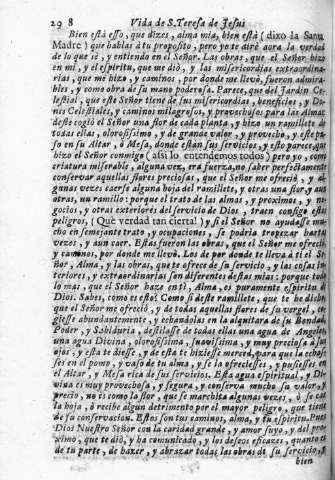 29 8 Vida de S. Teresa de Jesus
Bien està esso, que dizes, alma mia, bien està ( dixo la Santa
Madre ) que hablas à tu proposito, pero yo te dirè aora la verdad
de lo que sè, y entiendo en el Señor. Las obras, que el Señor hizo
en mi, y el espiritu, que me diò, y las misericordias extraordina-
rias, que me hizo, y caminos, por donde me llevò, fueron admira-
bles, y como obra de su mano poderosa. Parece, que del Jardin Ce-
lestial, que este Señor tiene de sus misericordias, beneficios, y Do-
nes Celestiales, y caminos milagrosos, y provechosos para las Almas
deste cogiò el Señor una flor de cada planta, y hizo un ramillete de
todas ellas, olorosissimo, y de grande valor, y provecho, y este pu-
so en su Altar, ò Mesa, donde estàn sus servicios, y esto parece, que
hizo el Señor conmigo ( assi lo entendemos todos ) pero yo, como
criatura miserable, alguna vez, erà fuerza, no saber perfectamente
conservar aquellas flores preciosas, que el Señor me ofreciò, y al-
gunas vezes caerse alguna hoja del ramillete, y otras una flor, y aun
otras, un ramillo: porque el trato de las almas, y proximos, y ne-
gocios, y otras exteriores del servicio de Dios, traen consigo estos
peligros, ( Què verdad tan cierta! ) y si el Señor no ayudasse mu-
cho en semejante trato, y ocupaciones, se podria tropezar hartas
vezes, y aun caer. Estas fueron las obras, que el Señor me ofreciò,
y caminos, por donde me llevò. Los de por donde te lleva à ti el Se-
ñor, Alma, y las obras, que te ofrece de su servicio, y las cosas in-
teriores, y extraordinarias son diferentes destas mias: porque todo
lo mas, que el Señor haze en ti, Alma, es puramente espiritu de
Dios. Sabes, como es esto? Como si deste ramillete, que te he dicho,
que el Señor me ofreciò, y de todas aquellas flores de su vergel, co-
giesse abundantemente, y echandolas en la alquitara de su Bondad,
Poder, y Sabiduria, destilasse de todas ellas una agua de Angeles,
una agua Divina, olorosissima, suavissima, y muy preciosa à sus
ojos, y esta te diesse, y de esta te hiziesse merced, para que la echas-
ses en el pomo, y vaso de tu alma, y se la ofreciesses, y pusiesses en
el Altar, y Mesa rica de sus servicios. Esta agua espiritual, y Di-
vina es muy provechosa, y segura, y conserva mucho su valor, y
precio, no es como la flor, que se marchita algunas vezes, ò se cae
la hoja, ò recibe algun detrimento por el mayor peligro, que tiene
de su conservacion. Estos son tus caminos, alma, y tu espiritu. Pues
Dios Nuestro Señor con la caridad grande, y amor suyo, y del pro-
ximo, que te diò, y ha comunicado, y los deseos eficazes, quanto es
de tu parte, de hazer, y abrazar todas las obras de su servicio, y
bien